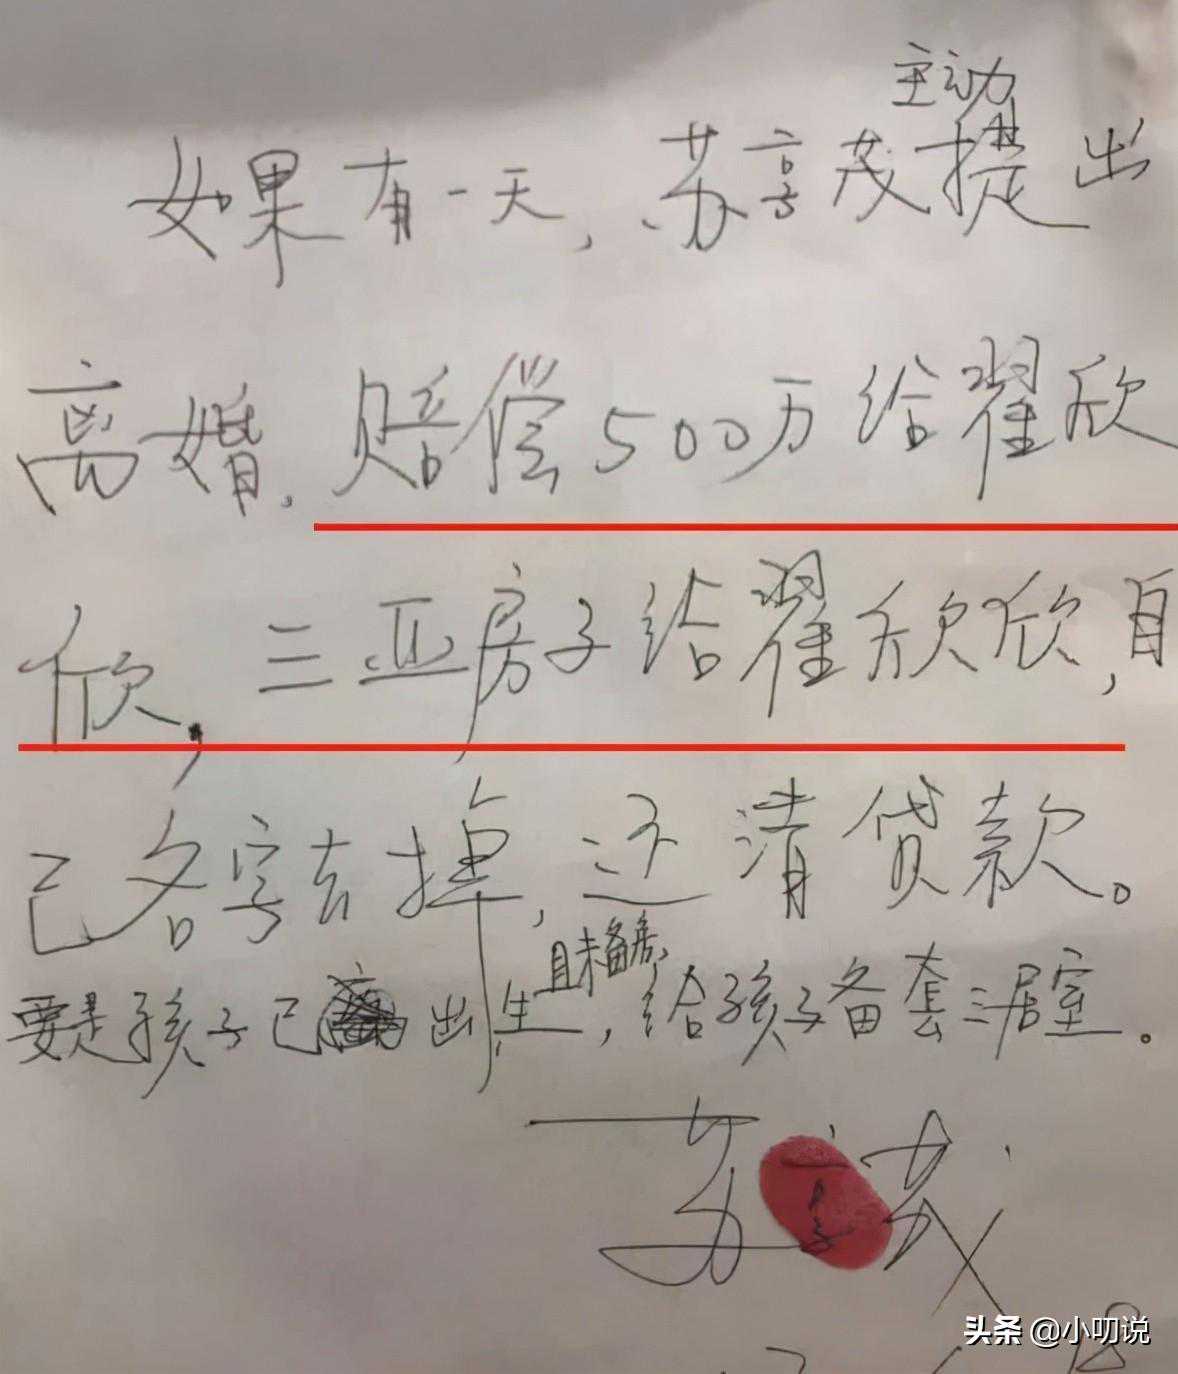 主动
如果有一天，苏享茂提出
离婚，赔偿500万给翟欣
欣，三亚房子给翟欣欣，自
己名字去掉，还清贷款。
且未备房，
要是孩子已出生，给孩子备套三居室。
苏享茂
头条 @小叨说